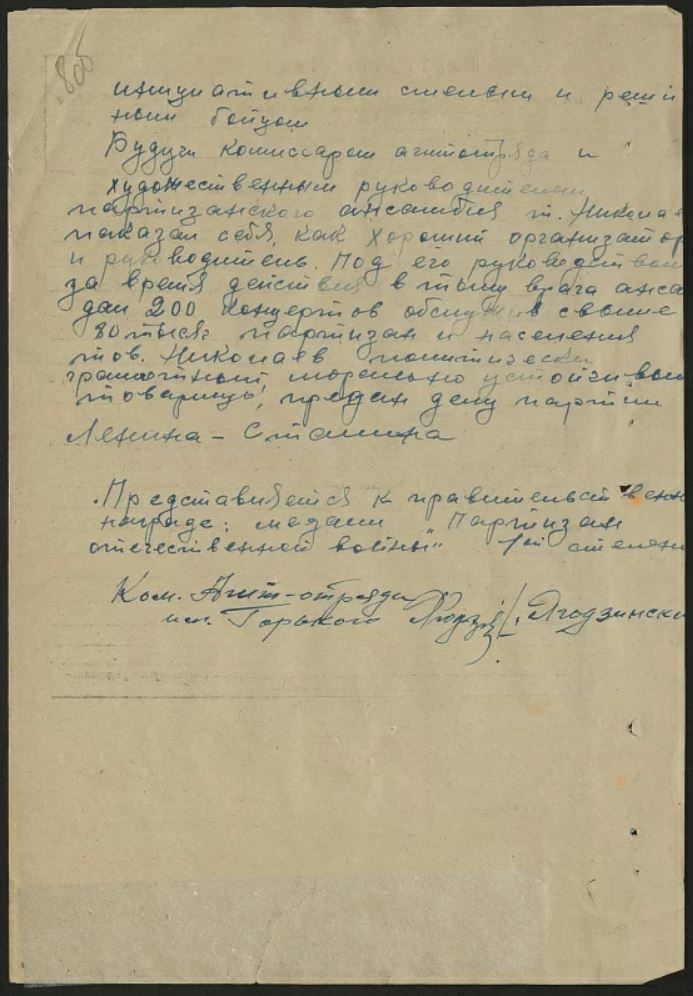 инициативным смелым и реши
ным бойцом
Будучи комиссаром агитотряда и
художественным руководителем
партизанского ансамбля т. Николае
показал себя, как хороший организатор
и руководитель. Под его руководством
за время действия в тылу врага анса
дал 200 концертов обслужив свыше
80 тысяч партизан и населения
тов. Николаев политически
грамотный, морально устойчивый
товарищ, предан делу партии
Ленина - Сталина
Представляется к правительственн
награде: медали "Партизан
отечественной войны" 1ой степени
Ком. Агит-отряда
им. Горького /. Ягодзински